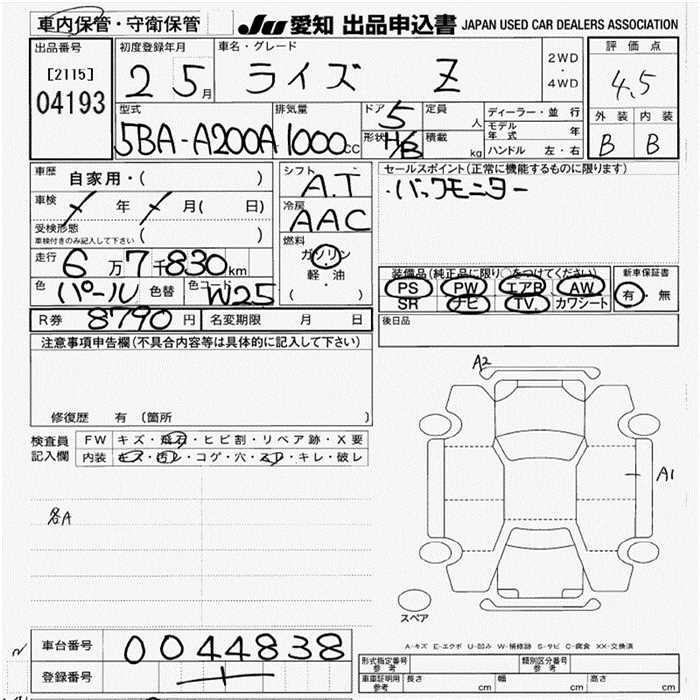 車内保管・守衛保管
JU 愛知 出品申込書 JAPAN USED CAR DEALERS ASSOCIATION
出品番号
[2115]
04193
初度登録年月
2 5月
車名・グレード
ライズ Z
2WD
・
4WD
評価点
4.5
外装 内装
B B
型式
5BA-A200A
排気量
1000cc
ドア
5
形状
H/B
定員
人
積載
kg
ディーラー・並行
モデル年式 年
ハンドル 左・右
車歴 自家用・( )
車検 / 年 / 月( 日)
受検形態
車検付きのみ記入して下さい ( )
走行 6万7千830km
色 パール 色替 色コード W25
シフト
A.T
冷房
AAC
燃料
ガソリン
軽・油
( )
セールスポイント(正常に機能するものに限ります)
・バックモニター
装備品(純正品に限り○をつけてください)
PS PW エアB AW
SR ナビ TV カワシート
新車保証書
有・無
R券 8790円 名変期限 月 日
後日品
注意事項申告欄(不具合内容等は具体的に記入して下さい)
修復歴 有 (箇所
検査員記入欄
FW キズ・飛石・ヒビ割・リペア跡・X要
内装 キズ・汚レ・コゲ・穴・スレ・キレ・破レ
各A
A2
A1
スペア
A-キズ E-エクボ U-凹み W-補修跡 S-サビ C-腐食 XX-交換済
車台番号 0044838
登録番号
型式指定番号 参考
類別区分番号 参考
車庫証明用 参考 長さ cm 幅 cm 高さ cm